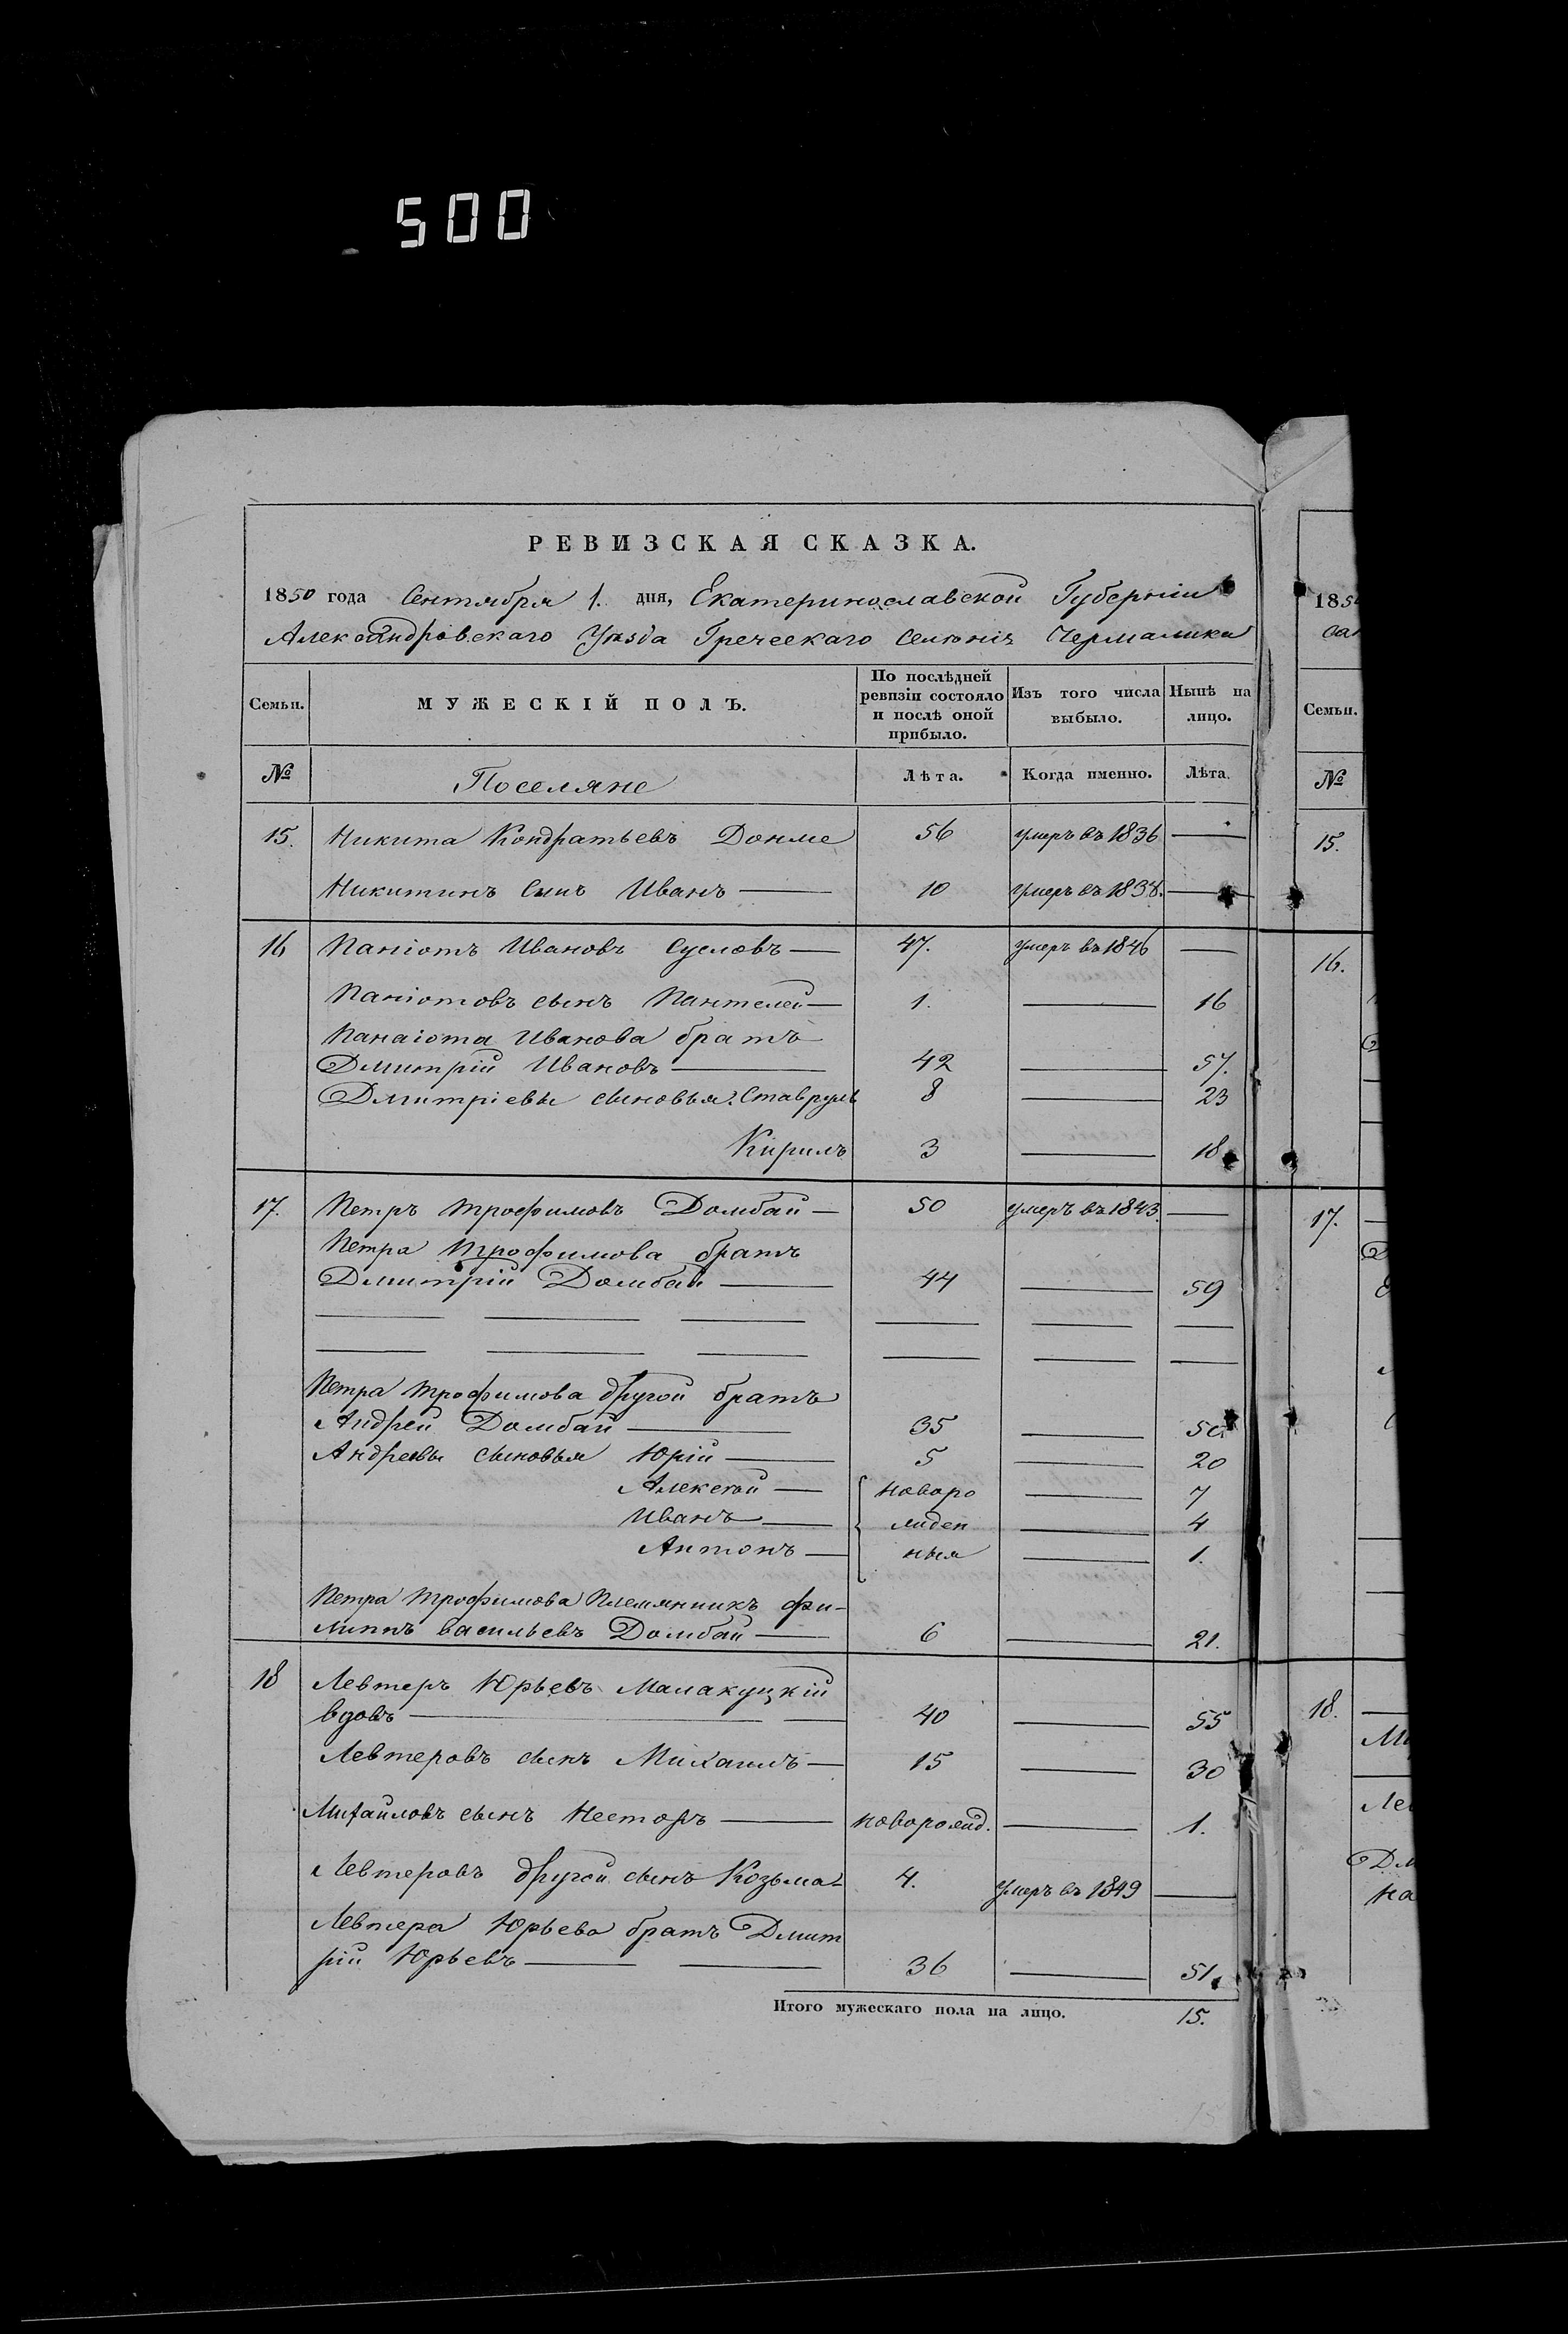 500
РЕВИЗСКАЯ СКАЗКА.
1850 года Сентября 1. дня, Екатеринославской Губерніи
Александровскаго Уѣзда Греческаго Селенія Чермалика
Семьи. МУЖЕСКІЙ ПОЛЪ. По послѣдней ревизіи состояло и послѣ оной прибыло. Изъ того числа выбыло. Нынѣ на лицо.
№ Поселяне Лѣта. Когда именно. Лѣта.
15. Никита Кондратьевъ Донме 56 умеръ въ 1836 —
Никитинъ сынъ Иванъ — 10 умеръ въ 1838. —
16 Паніотъ Ивановъ Сусловъ — 47. умеръ въ 1846 —
Паніотовъ сынъ Пантелей — 1. — 16
Панаіота Иванова братъ
Дмитрій Ивановъ — 42 — 57.
Дмитріевы сыновья: Ставруль 8 — 23
Кирилъ 3 — 18
17. Петръ Трофимовъ Домбай — 50 умеръ въ 1843. —
Петра Трофимова братъ
Дмитрій Домбай — 44 — 59
— — — — — —
— — — — — —
Петра Трофимова другой братъ
Андрей Домбай — 35 — 50.
Андреевы сыновья Юрій — 5 — 20
Алексѣй — новоро — 7
Иванъ — жден — 4
Антонъ — ныя — 1.
Петра Трофимова Племянникъ Фи-
липпъ Васильевъ Домбай — 6 — 21.
18 Левтеръ Юрьевъ Малакуцкій
вдовъ — — 40 — 55
Левтеровъ сынъ Михаилъ — 15 — 30
Михайловъ сынъ Несторъ — новорожд. — 1.
Левтеровъ другой сынъ Козьма- 4. умеръ въ 1849 —
Левтера Юрьева братъ Дмит
рій Юрьевъ — — 36 — 51.
Итого мужескаго пола на лицо. 15.
185
Семьи.
№
15.
16.
17.
18.